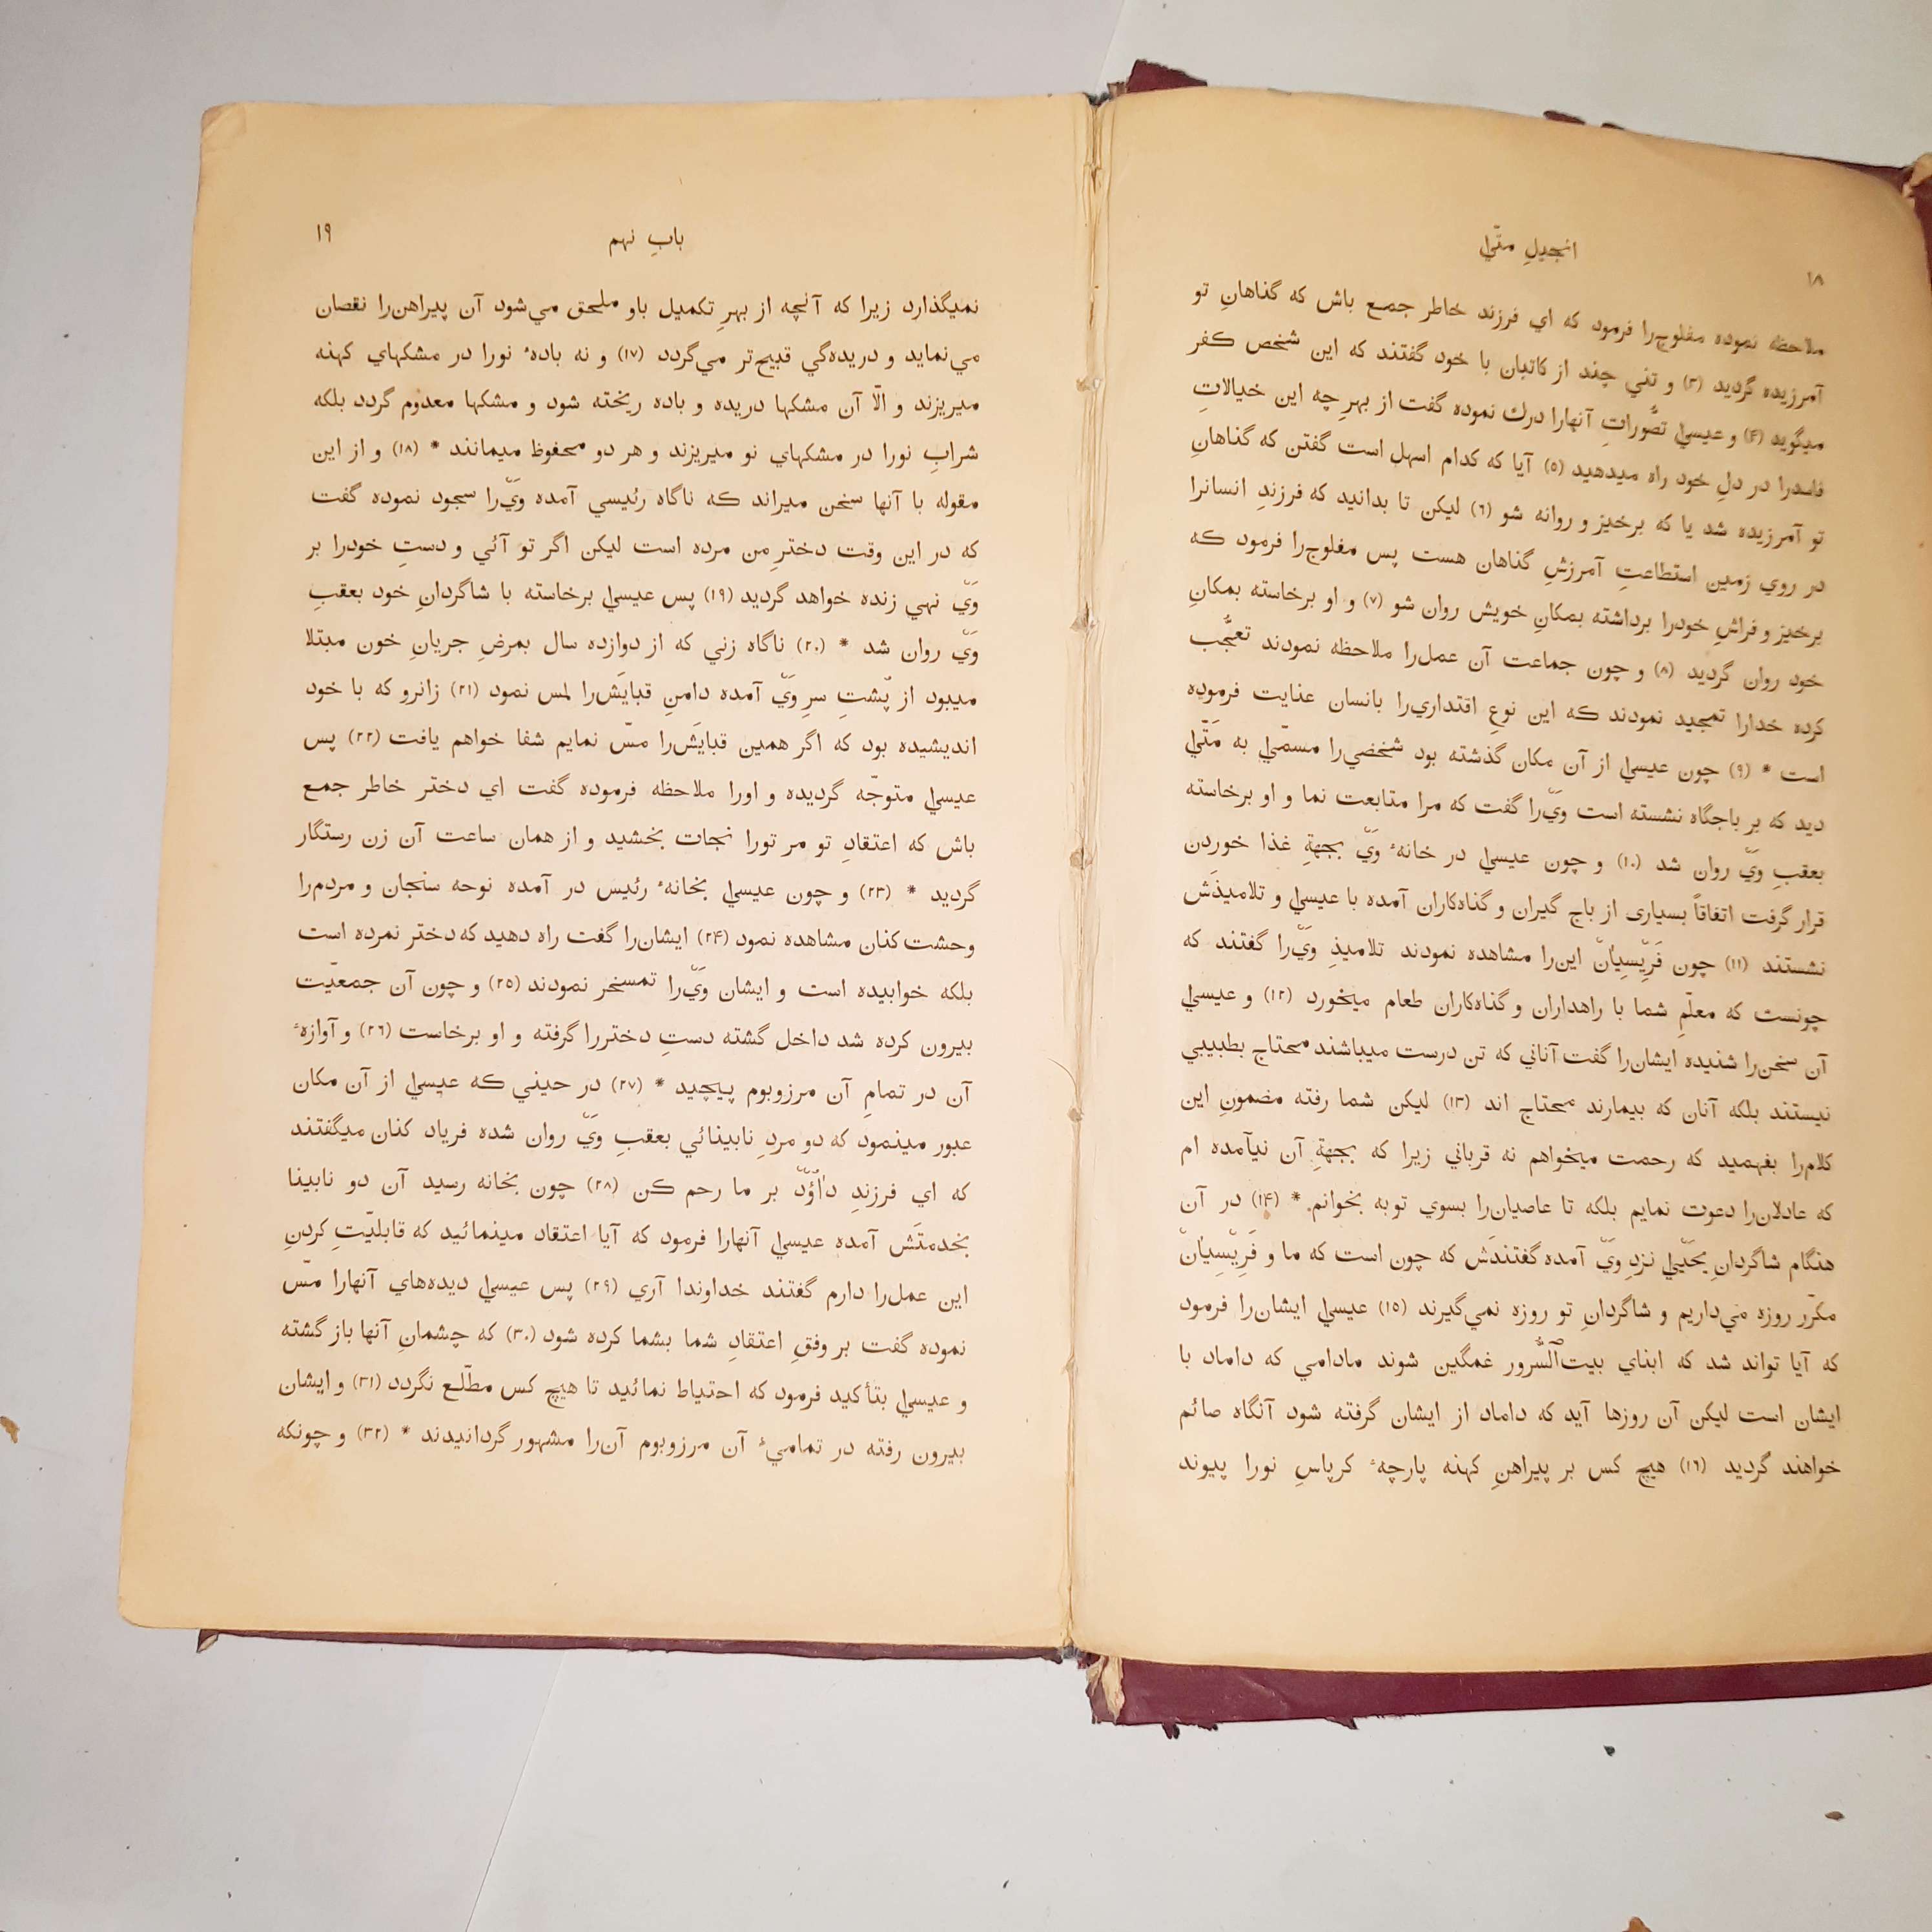 ۱۸
انجیلِ متّیٰ
ملاحظه نموده مفلوج‌را فرمود که اي فرزند خاطر جمع باش که گناهانِ تو
آمرزیده گردید (۳) و تني چند از کاتبان با خود گفتند که این شخص کفر
میگوید (۴) و عیسیٰ تصّوراتِ آنهارا درك نموده گفت از بهرِ چه این خیالاتِ
فاسدرا در دلِ خود راه میدهید (۵) آیا که کدام اسهل است گفتن که گناهانِ
تو آمرزیده شد یا که برخیز و روانه شو (۶) لیکن تا بدانید که فرزندِ انسانرا
در روي زمین استطاعتِ آمرزشِ گناهان هست پس مفلوج‌را فرمود که
برخیز و فراشِ خودرا برداشته بمکانِ خویش روان شو (۷) و او برخاسته بمکانِ
خود روان گردید (۸) و چون جماعت آن عمل‌را ملاحظه نمودند تعجّب
کرده خدارا تمجید نمودند که این نوعِ اقتداري‌را بانسان عنایت فرموده
است * (۹) چون عیسیٰ از آن مکان گذشته بود شخصي‌را مسمّیٰ به مَتّیٰ
دید که بر باجگاه نشسته است وَيّ‌را گفت که مرا متابعت نما و او برخاسته
بعقبِ وَيّ روان شد (۱۰) و چون عیسیٰ در خانهٔ وَيّ بجهةِ غذا خوردن
قرار گرفت اتفاقاً بسیاری از باج گیران و گناه‌کاران آمده با عیسیٰ و تلامیذَش
نشستند (۱۱) چون فَرِیْسِیٰانْ این‌را مشاهده نمودند تلامیذِ وَيّ‌را گفتند که
چونست که معلّمِ شما با راهداران و گناه‌کاران طعام میخورد (۱۲) و عیسیٰ
آن سخن‌را شنیده ایشان‌را گفت آناني که تن درست میباشند محتاج بطبیبي
نیستند بلکه آنان که بیمارند محتاج اند (۱۳) لیکن شما رفته مضمونِ این
کلام‌را بفهمید که رحمت میخواهم نه قرباني زیرا که بجهةِ آن نیآمده ام
که عادلان‌را دعوت نمایم بلکه تا عاصیان‌را بسوي توبه بخوانم * (۱۴) در آن
هنگام شاگردانِ یحَییٰ نزدِ وَيّ آمده گفتندَش که چون است که ما و فَرِیْسِیٰانْ
مکرّر روزه مي‌داریم و شاگردانِ تو روزه نمي‌گیرند (۱۵) عیسیٰ ایشان‌را فرمود
که آیا تواند شد که ابناي بیت‌ٱلسُّرور غمگین شوند مادامي که داماد با
ایشان است لیکن آن روزها آید که داماد از ایشان گرفته شود آنگاه صائم
خواهند گردید (۱۶) هیچ کس بر پیراهنِ کهنه پارچهٔ کرپاسِ نورا پیوند
بابِ نهم
۱۹
نمیگذارد زیرا که آنچه از بهرِ تکمیل باو ملحق مي‌شود آن پیراهن‌را نقصان
مي‌نماید و دریده‌گي قبیح‌تر مي‌گردد (۱۷) و نه بادهٔ نورا در مشکهاي کهنه
میریزند و الّا آن مشکها دریده و باده ریخته شود و مشکها معدوم گردد بلکه
شرابِ نورا در مشکهاي نو میریزند و هر دو محفوظ میمانند * (۱۸) و از این
مقوله با آنها سخن میراند که ناگاه رئیسي آمده وَيّ‌را سجود نموده گفت
که در این وقت دخترِ من مرده است لیکن اگر تو آئي و دستِ خودرا بر
وَيّ نهي زنده خواهد گردید (۱۹) پس عیسیٰ برخاسته با شاگردانِ خود بعقبِ
وَيّ روان شد * (۲۰) ناگاه زني که از دوازده سال بمرضِ جریانِ خون مبتلا
میبود از پُشتِ سرِ وَيّ آمده دامنِ قبایَش‌را لمس نمود (۲۱) زانرو که با خود
اندیشیده بود که اگر همین قبایَش‌را مسّ نمایم شفا خواهم یافت (۲۲) پس
عیسیٰ متوجّه گردیده و اورا ملاحظه فرموده گفت اي دختر خاطر جمع
باش که اعتقادِ تو مر تورا نجات بخشید و از همان ساعت آن زن رستگار
گردید * (۲۳) و چون عیسیٰ بخانهٔ رئیس در آمده نوحه سنجان و مردم‌را
وحشت کنان مشاهده نمود (۲۴) ایشان‌را گفت راه دهید که دختر نمرده است
بلکه خوابیده است و ایشان وَيّ‌را تمسخر نمودند (۲۵) و چون آن جمعیّت
بیرون کرده شد داخل گشته دستِ دختررا گرفته و او برخاست (۲۶) و آوازهٔ
آن در تمامِ آن مرزوبوم پیچید * (۲۷) در حیني که عیسیٰ از آن مکان
عبور مینمود که دو مردِ نابینائي بعقبِ وَيّ روان شده فریاد کنان میگفتند
که اي فرزندِ دٰاوُدْ بر ما رحم کن (۲۸) چون بخانه رسید آن دو نابینا
بخدمتَش آمده عیسیٰ آنهارا فرمود که آیا اعتقاد مینمائید که قابلیّتِ کردنِ
این عمل‌را دارم گفتند خداوندا آري (۲۹) پس عیسیٰ دیده‌هاي آنهارا مسّ
نموده گفت بر وفقِ اعتقادِ شما بشما کرده شود (۳۰) که چشمانِ آنها باز گشته
و عیسیٰ بتأکید فرمود که احتیاط نمائید تا هیچ کس مطّلع نگردد (۳۱) و ایشان
بیرون رفته در تمامیٔ آن مرزوبوم آن‌را مشهور گردانیدند * (۳۲) و چونکه